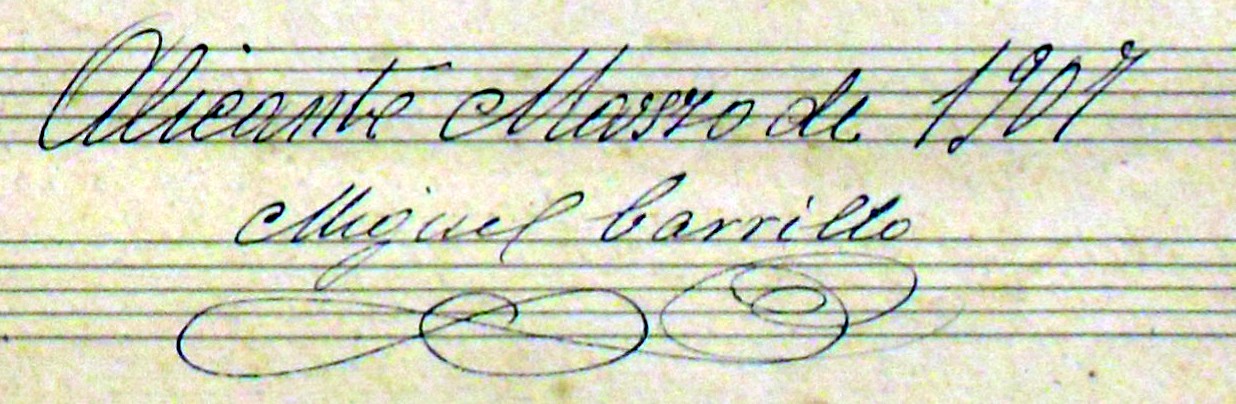 Alicante Marzo de 1907
Miguel Carrillo